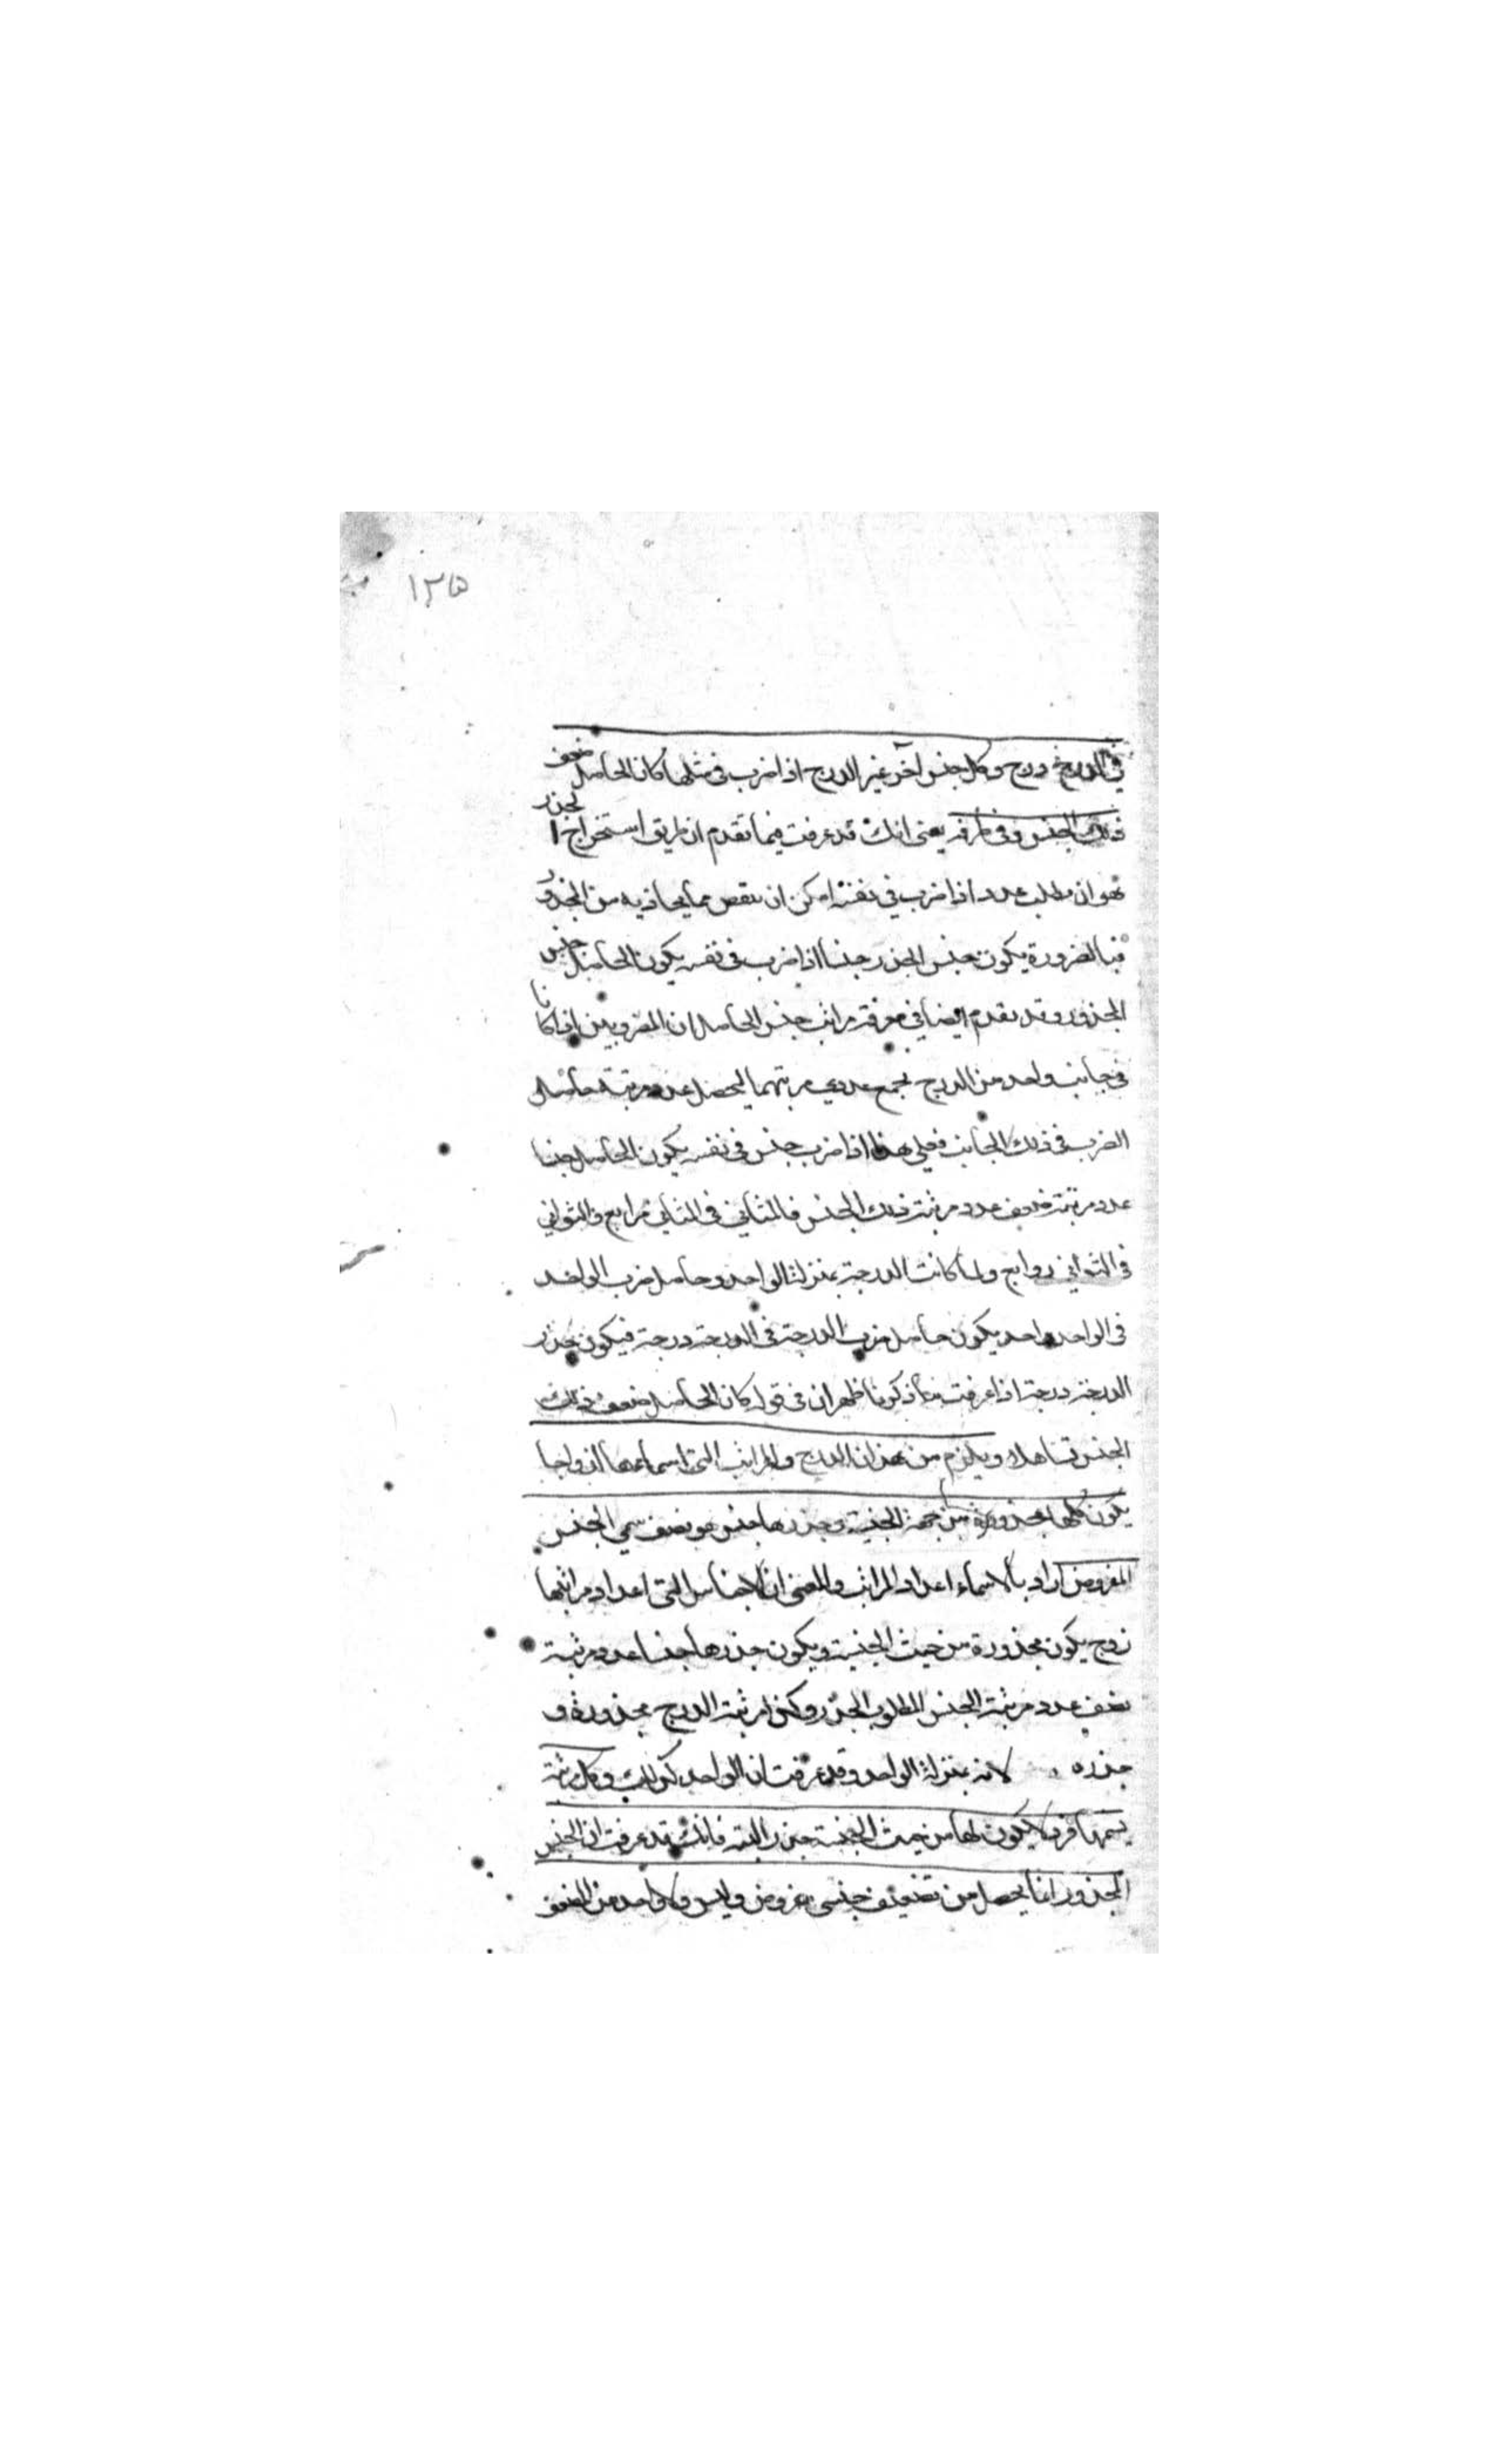 ١٣٥
في الدرج درج وكل جنس آخر غير الدرج اذا ضرب في مثلها كان الحاصل ضعف
ذلك الجنس وفي طرفه يعني انك قد عرفت فيما تقدم ان طريق استخراج الجذر
هو ان يطلب عدد اذا ضرب في نفسه امكن ان ينقص مما يحاذيه من المجذور
فبالضرورة يكون جنس الجذر جنسا اذا ضرب في نفسه يكون الحاصل جنس
المجذور وقد تقدم ايضا في معرفة مراتب جنس الحاصل ان المضروبين اذا كانا
في جانب واحد من الدرج يجمع عددي مرتبتهما ليحصل عدد مرتبة حاصل
الضرب في ذلك الجانب فعلي هذا اذا ضرب جنس في نفسه يكون الحاصل جنسا
عدد مرتبته ضعف عدد مرتبة ذلك الجنس فالمثاني في المثاني مرابع والثواني
في الثواني روابع ولما كانت الدرجة بمنزلة الواحد وحاصل ضرب الواحد
في الواحد واحد يكون حاصل ضرب الدرجة في الدرجة درجة فيكون جذر
الدرجة درجة اذا عرفت ما ذكرنا ظهر ان في قوله كان الحاصل ضعف ذلك
الجنس تساهلا ويلزم من هذا ان الدرج والمراتب التي اسماءها ازواجا
يكون كلها مجذورة من جهة الجنسية وجذرها جنس هو نصف سمي الجنس
المفروض اراد بالاسماء اعداد المراتب والمعني ان الاجناس التي اعداد مراتبها
زوج يكون مجذورة من حيث الجنسية ويكون جذرها جنسا عدد مرتبته
نصف عدد مرتبة الجنس المطلوب الجذر وكذا مرتبة الدرج مجذورة و
جذره لانه بمنزلة الواحد وقد عرفت ان الواحد كذلك وكل مرتبة
سميها فرد لا يكون لها من حيث الجنسية جذر البتة فانك قد عرفت ان الجنس
المجذور انما يحصل من تضعيف جنس مفروض وليس ولا واحد من الضعف